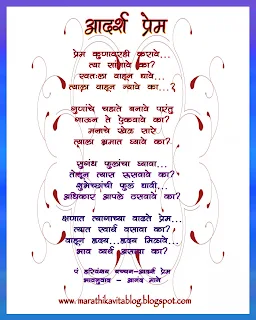 आदर्श प्रेम
प्रेम कुणावरही करावे...
त्या सांगावे का?
स्वतःला वाहून घावे...
त्याला वाहून न्यावे का...?
गुणांचे चहाते बनावे परंतु
गाऊन ते ऐकवावे का?
मनाचे खेळ सारे
त्याला भ्रमात घ्यावे का?
सुगंध फुलांचा घ्यावा...
तोडून त्यास उसवावे का?
शुभेच्छांची फुलं द्यावी...
अधिकार आपले ठसवावे का?
क्षणात त्यागाच्या वाढते प्रेम...
त्यात स्वार्थ वसावा का?
वाहून हृदय... हृदय मिळावे...
भाव व्यर्थ असावा का?
पं हरिवंशराय बच्चन-आदर्श प्रेम
भावानुवाद - आनंद माने
www.marathikavitablog.blogspot.com